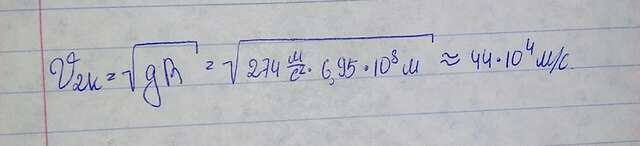 V₂ₖ = √gR = √274 м/с² · 6,95 · 10⁸ м ≈ 44 · 10⁴ м/с.